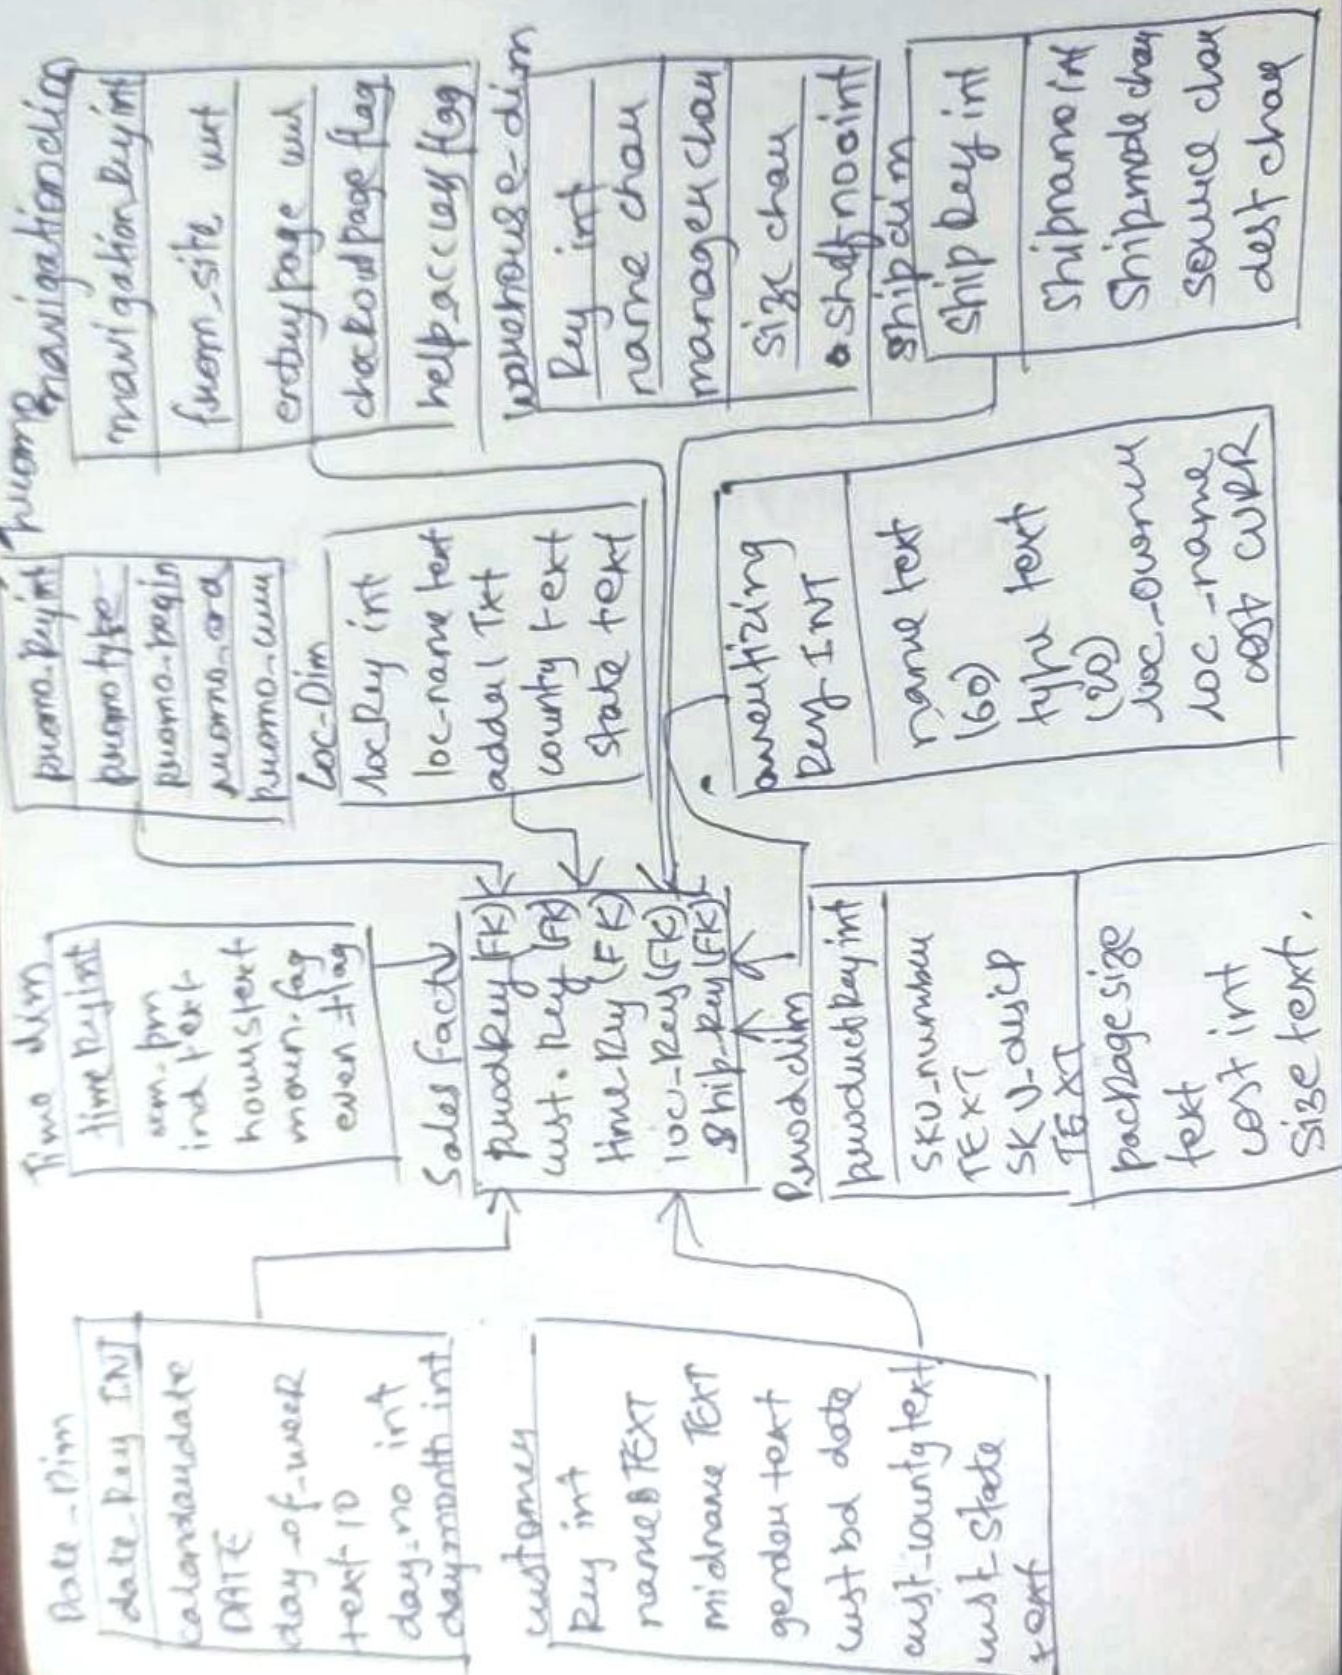 Date_Dim
date_key INT
calandardate
DATE
day_of_week
text 10
day_no int
daymonth int
customer
key int
name TEXT
midname TEXT
gender text
cust bd date
cust_county text
cust_state
text
Time dim
time key int
am_pm
ind text
hours text
morn.fag
even_flag
Sales fact
prodkey (FK)
cust.key (FK)
time key (FK)
loc_key (FK)
Ship_key (FK)
Prod dim
product key int
SKU_number
TEXT
SKU_desicp
TEXT
package size
text
cost int
Size text.
promo
promo.key int
promotype
promo.begin
promo_end
Loc-Dim
loc key int
loc-name text
adder1 Txt
county text
state text
averitizing
key INT
name text
(60)
type text
(20)
loc_owner
loc_name
cost CURR
navigationdim
navigation key int
from_site url
entrypage url
checkoutpage flag
help_access flag
warehouse-dim
key int
name char
manager char
size char
shaft no oint
Ship dim
ship key int
Shipmano int
Shipmode char
source char
dest char